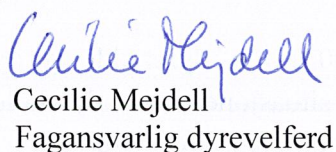 Cecilie Mejdell
Cecilie Mejdell
Fagansvarlig dyrevelferd